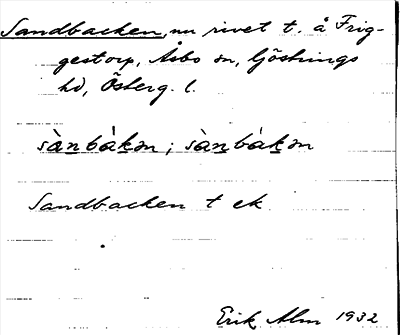 Sandbacken, nu rivet t. å Frig-
gestorp, Åsbo sn, Göstrings
hd, Österg. l.
sànbàkən ; sànbákən
Sandbacken t ek
Erik Alm 1932